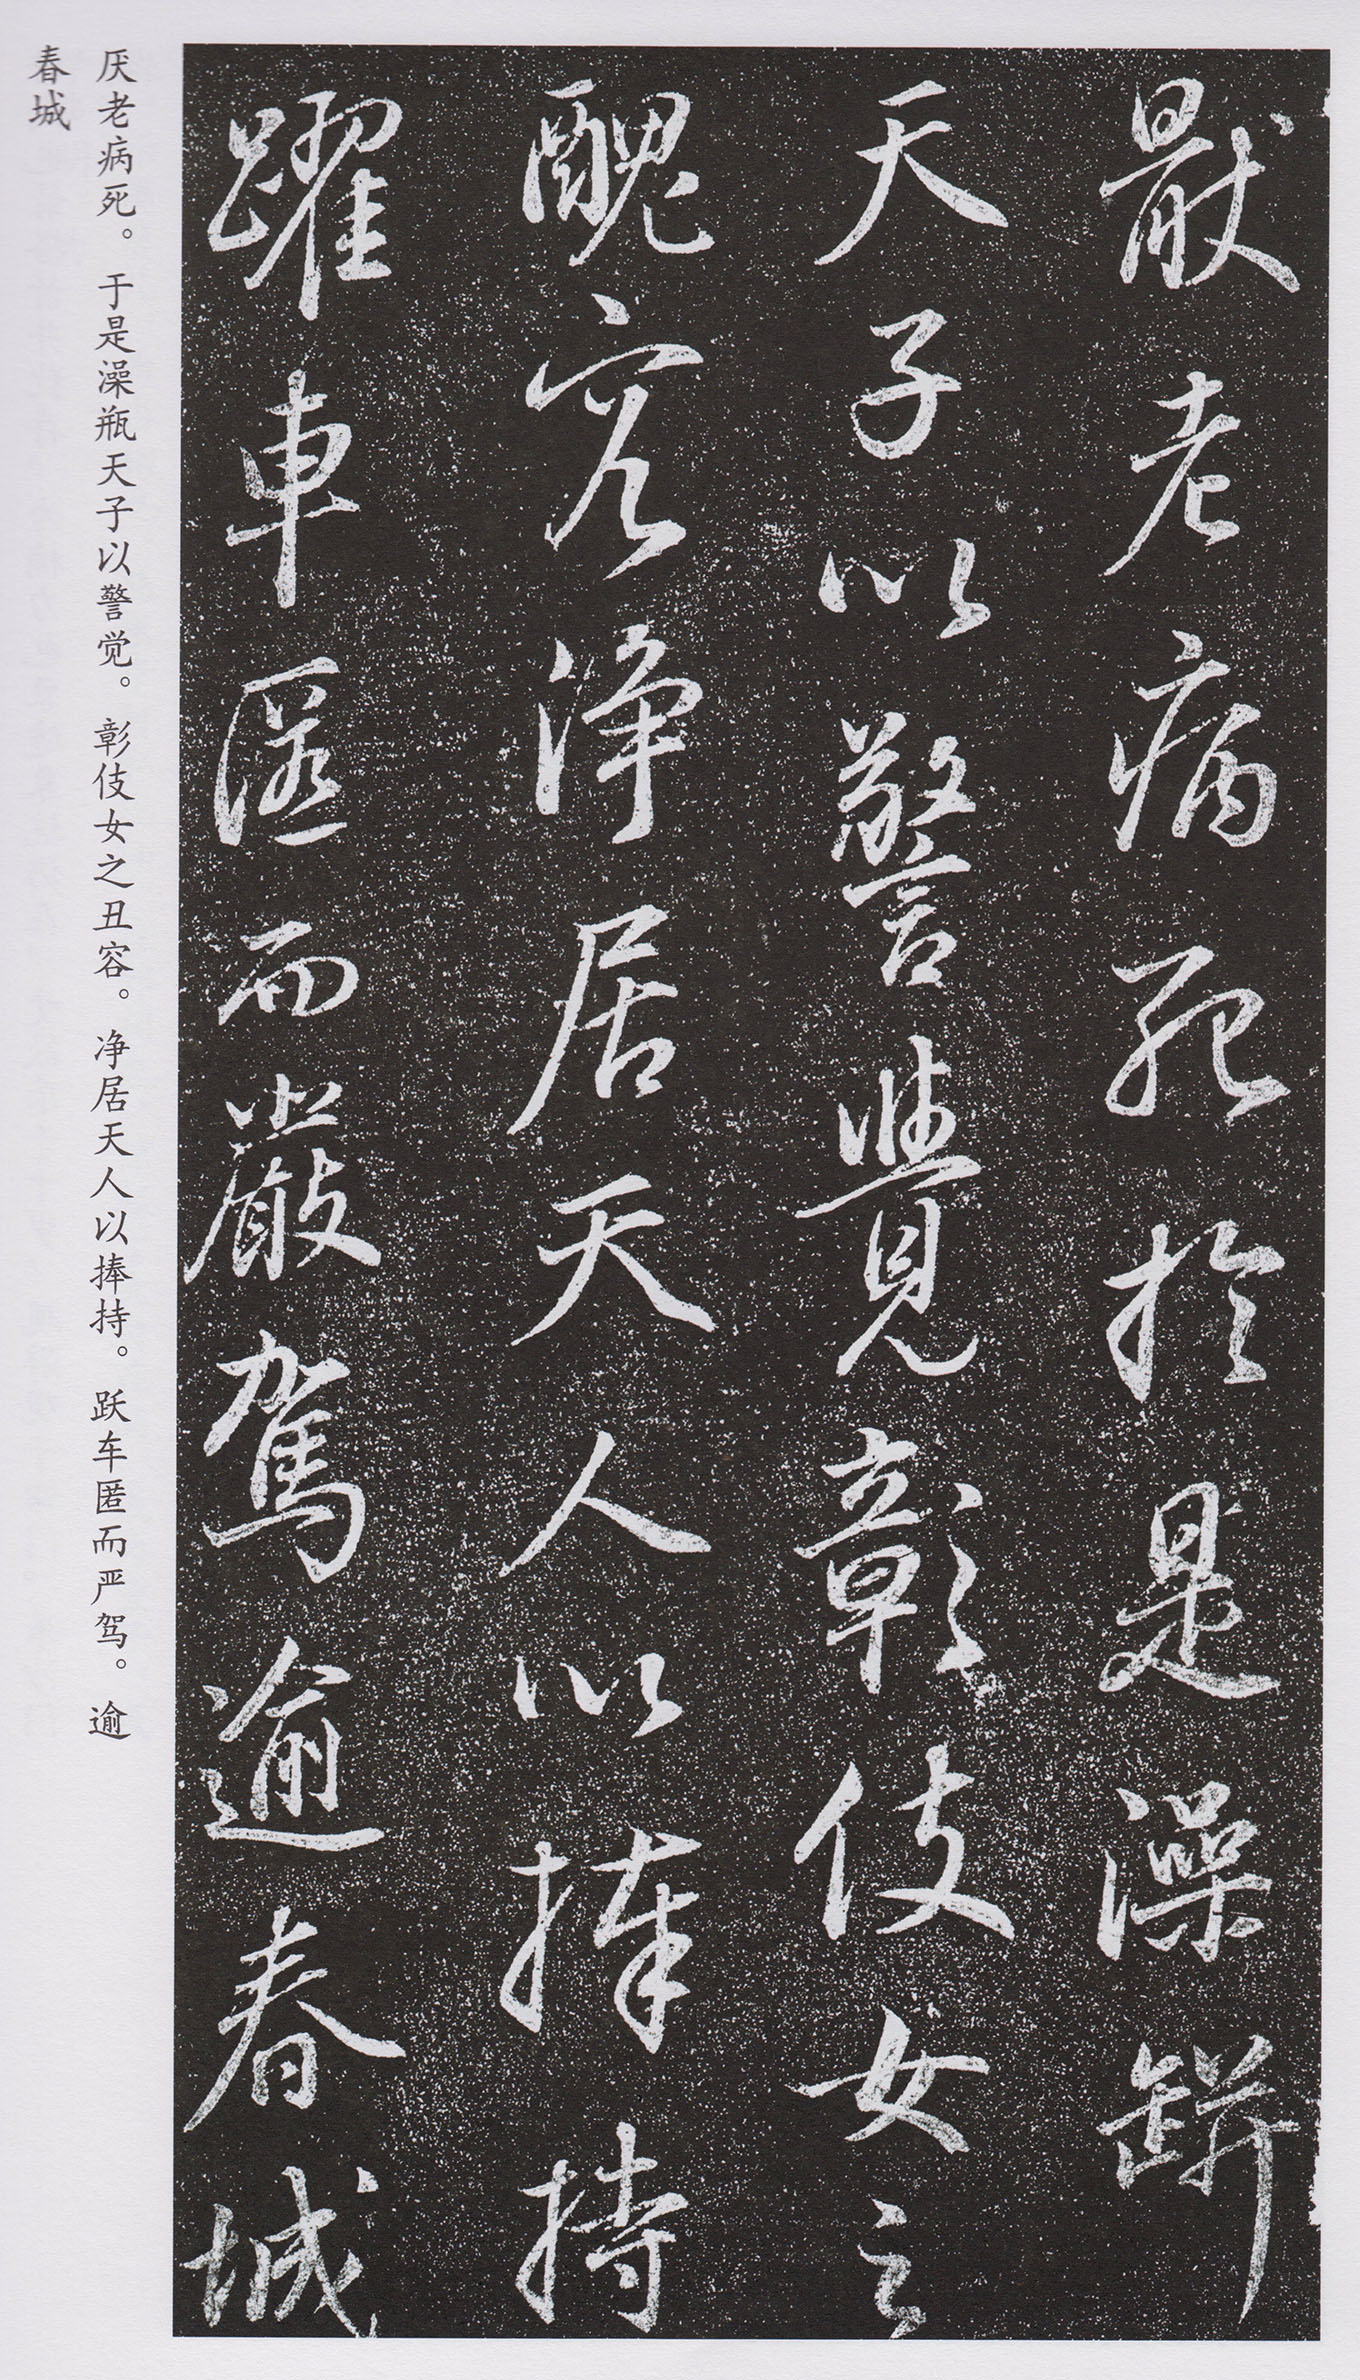 猒老病死於是澡缾
天子以警覺彰伎女之
醜容淨居天人以捧持
躍車匿而嚴駕逾春城
厌老病死。于是澡瓶天子以警觉。彰伎女之丑容。净居天人以捧持。跃车匿而严驾。逾
春城